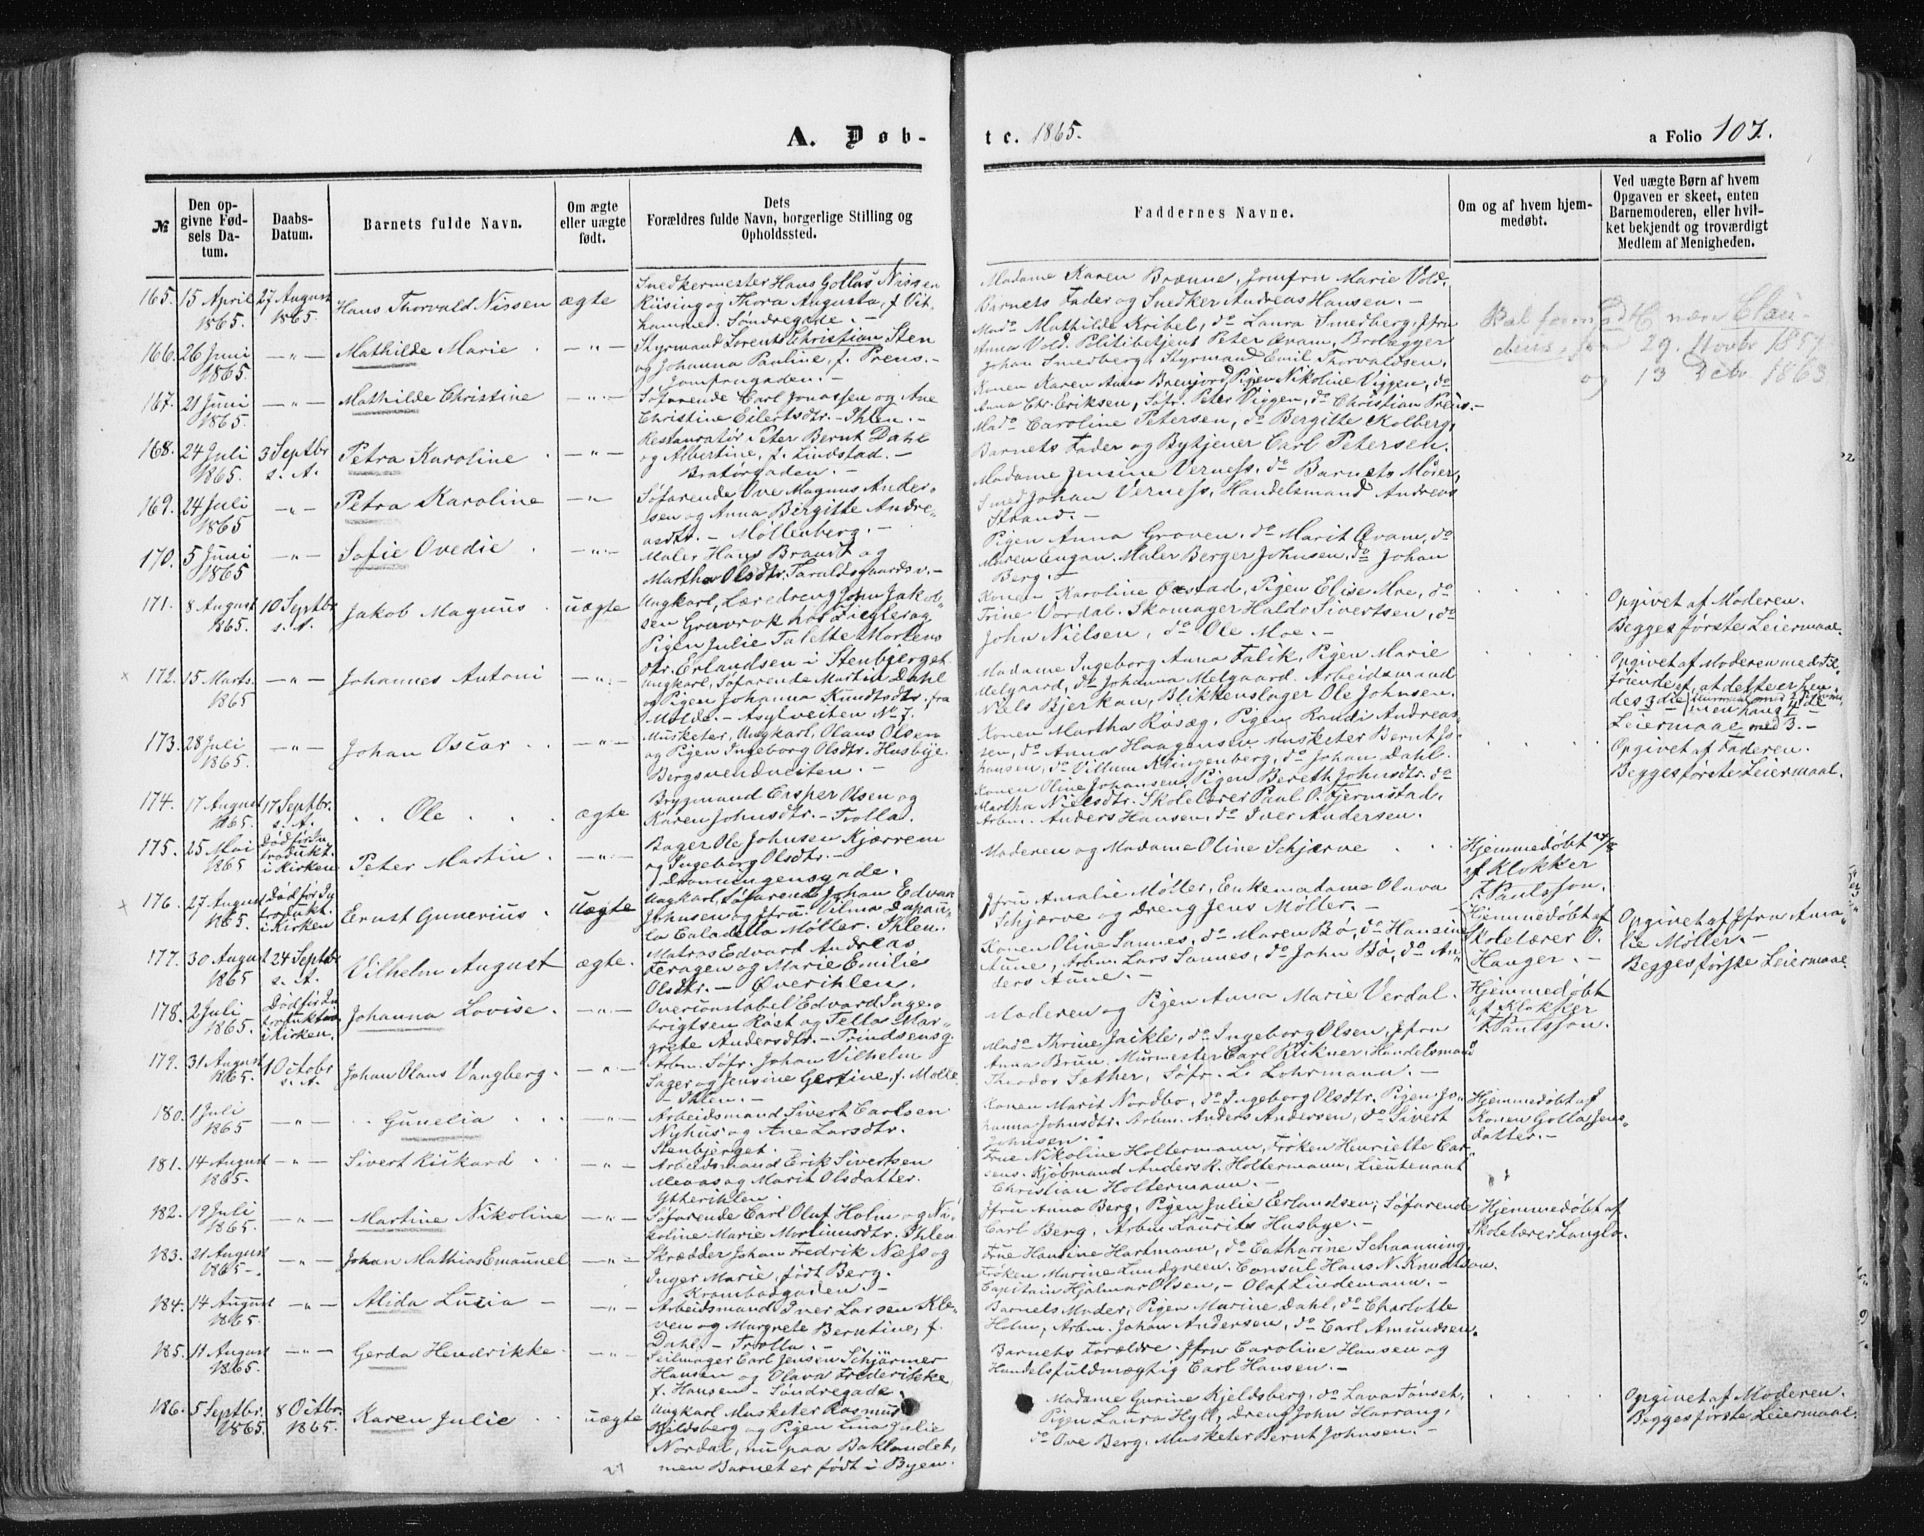 A. Døb-
te. 1865.
a Folio 107.
№
Den op-
givne Fød-
sels Da-
tum.
Daabs-
Datum.
Barnets fulde Navn.
Om ægte
eller uægte
født.
Dets
Forældres fulde Navn, borgerlige Stilling og
Opholdssted.
Faddernes Navne.
Om og af hvem hjem-
medøbt.
Ved uægte Børn af hvem
Opgaven er skeet, enten
Barnemoderen, eller hvil-
ket bekjendt og troværdigt
Medlem af Menigheden.
165. 15 April 1865. 27 August 1865 Hans Thorvald Nissen ægte
Snedkermester Hans Gollas Nissen
Riising og Thora Augusta, f. Vit-
hammer. Søndregade. —
Madame Karen Brænne, Jomfru Marie Vold,
Barnets Fader og Snedker Andreas Hansen. —
166. 26 Juni 1865. —„— Mathilde Marie —„—
Styrmand Lorents Christian Sten
og Johanna Pauline, f. Prens. —
Jomfrugaden. —
Mado Mathilde Kribel, do Laura Smedberg, Jfru
Anna Vold, Politibetjent Peter Qvam, Brolægger
Johan Smedberg, Styrmand Emil Thorvaldsen.
167. 21 Juni 1865. —„— Mathilde Christine —„—
Søfarende Carl Jonassen og Ane
Christine Eilertsdtr. — Ihlen. —
Konen Karen Anna Brenjord, Pigen Nikoline Viggen, do
Anna Chr. Eriksen, Søfr. Peter Viggen, do Christian Prens. —
168. 24 Juli 1865. 3 Septbr s. A. Petra Karoline —„—
Restauratør Peter Bernt Dahl
og Albertine, f. Lindstad. —
Bratørgaden. —
Mado Caroline Petersen, do Bergitte Kolberg,
Barnets Fader og Bytjener Carl Petersen.
169. 24 Juli 1865 —„— Petra Karoline —„—
Søfarende Ove Magnus Ander-
sen og Anna Birgitte Andre-
asdtr. — Møllenberg. —
Madame Jensine Verness, do Barnets Moer,
Smed Johan Verness, Handelsmand Andreas
Strand. —
170. 5 Juni 1865 —„— Sofie Ovedie —„—
Maler Hans Brandt og
Martha Olsdtr. Taraldsgaardsv. —
Pigen Anna Graven, do Marit Qvam, do
Maren Engan. Maler Berger Johnsen, do Johan
Berg. —
171. 8 August 1865. 10 Septbr s. A. Jakob Magnus uægte
Ungkarl, Læredreng John Jakob-
sen Gravrok hos Ziegler og
Pigen Julie Talette Mortens
Dtr. Erlandsen i Stenbjerget
Konen Karoline Ørstad, Pigen Elise Moe, do
Trine Vordal. Skomager Haldo Sivertsen, do
John Nielsen, do Ole Moe. —
Opgivet af Moderen.
Begges første Leiermaal.
172. 15 Marts 1865 —„— Johannes Antoni —„—
Ungkarl, Søfarende Martin Dahl
og Pigen Johanna Knudtsdtr. fra
Molde. — Asylveiten No 7.
Madame Ingeborg Anna Falik, Pigen Marie
Melgaard, do Johanna Melgaard. Arbeidsmand
Niels Bjerkan, Blikkenslager Ole Johnsen.
Opgivet af Moderen med Til-
føiende af, at dette er hen-
des 3die
Leiermaal med 3. —
173. 28 Juli 1865. —„— Johan Oscar —„—
Musketer, Ungkarl, Olaus Olsen
og Pigen Ingeborg Olsdtr. Husbye.
Bergsvendveiten. —
Konen Martha Rosæg, Pigen Randi Andreas-
sen, do Anna Haagensen, Musketer Bernt Jo-
hansen, do Villum Klingenberg, do Johan Dahl.
Opgivet af Faderen.
Begges første Leiermaal.
174. 17 August 1865. 17 Septbr. s. A. Ole ægte
Brygmand Casper Olsen og
Karen Johnsdtr. — Trolla.
Konen Oline Johansen, Pigen Bereth Johnsdtr. do
Martha Nielsdtr. Skolelærer Paul O. Fjermstad,
Arbm. Anders Hansen, do Iver Andersen.
175. 25 Mai 1865 Død før In-
troduk.
i Kirken Peter Martin —„—
Bager Ole Johnsen Kjærrem
og Ingeborg Olsdtr. —
Dronningensgade.
Moderen og Madame Oline Schjærve
Hjemmedøbt
af Klokker
T. Paulsson.
176. 27 August 1865. Død før In-
troduk.
i Kirken Ernst Gunerius uægte
Ungkarl, Søfarende Johan Edvard
Johnsen og Jfru Vilma
la Caladetta Møller. Ihlen.
Jfru Amalie Møller, Enkemadame Olava
Schjærve og Dreng Jens Møller. —
Hjemmedøbt af
Skolelærer O.
Hanger. —
Opgivet af Jfru Ama-
lie Møller. —
Begges første Leiermaal
177. 30 August 1865 24 Septbr s. A. Vilhelm August ægte.
Matros Edvard Andreas
Feragen og Marie Emilie
Olsdtr. — Øvre Ihlen.
Konen Oline Sannes, do Maren Bø, do Hansine
Aune, Arbm. Lars Sannes, do John Bø, do An-
ders Aune. —
178. 2 Juli 1865. Død før In-
troduktio
i Kirken. Johanna Lovise. —„—
Overconstabel Edvard Inge-
brigtsen Røst og Tella Mar-
grete Andersdtr. — Prindsensg.
Moderen og Pigen Anna Marie Verdal.
Hjemmedøbt
af Klokker
T. Paulsson.
179. 31 August 1865. 1 Octobr s. A. Johan Olaus Vangberg. —„—
Arbm. Søfr. Johan Vilhelm
Sager og Jensine Gertine, f. Molte
— Ihlen. —
Mado Thrine Jaikle, do Ingeborg Olsen, Jfru
Anna Brun. Murmester Carl Kükner, Handelsmand
Theodor Sæther, Søfr. L. Lohrmann. —
180. 1 Juli 1865 —„— Gunelia —„—
Arbeidsmand Sivert Carlsen
Nyhus og Ane Larsdtr.
Stenbjerget. —
Konen Marit Nordbo, do Ingeborg Olsdtr, Pigen Jo-
hanna Johnsdtr. Arbm. Anders Andersen, do Sivert
Johnsen.
Hjemmedøbt af
Konen Golla Jens-
datter. —
181. 14 August 1865. —„— Sivert Rickard —„—
Arbeidsmand Erik Sivertsen
Meaas og Marit Olsdatter.
Ytterihlen.
Frue Nikoline Holtermann, Frøken Henriette Car-
sens. Kjøbmand Anders R. Holtermann, Lieutenant
Christian Holtermann. —
182. 19 Juli 1865. —„— Martine Nikoline —„—
Søfarende Carl Oluf Holm og Ni-
koline Marie Mortinusdtr. Ihlen
Jfru Anna Berg, Pigen Julie Erlandsen, Søfarende
Carl Berg, Arbm Laurits Husbye. —
Hjemmedøbt af
Skolelærer Langlo.
183. 21 August 1865 —. —„— Johan Mathias Emaunuel —„—
Skrædder Johan Fredrik Næss og
Inger Marie, født Berg.
Krambodgaden. —
Frue Hansine Hartmann, do Catharine Schaanning
Frøken Murine Lundgreen. Consul Hans N. Knudtson,
Capitain Hjalmar Olsen, — Olaf Lindemann. —
184. 14 August 1865 —„— Alida Lucia — —„—
Arbeidsmand Iver Larsen Kle-
ven og Margrete Berntine, f.
Dahl. — Trolla. —
Barnets Moder, Pigen Marine Dahl, do Charlotte
Holm, Arbm. Johan Andersen, do Carl Amundsen.
185. 11 August 1865. —„— Gerda Hendrikke. —„—
Seilmager Carl Jensen Schjärmer
Hansen og Olava Frederikke
f. Hansen — Søndregade.
Barnets Forældre. Jfru Caroline Hansen og
Handelsfuldmægtig Carl Hansen. —
186. 5 Septbr. 1865. 8 Octbr. 1865. Karen Julie uægte
Ungkarl Musketer Rasmus
Kjeldsberg og Pigen Lina Julie
Nordal, nu paa Baklandet,
men Barnet er født i Byen.
Madame Gurine Kjeldsberg, do Lava Tønset,
Pigen Laura Hyll, Dreng John Harrang,
do Ove Berg. Musketer Bernt Johnsen. —
Opgivet af Moderen.
Begges første Leiermaal.
29. Novbr 1857
og 13 Decbr 1863